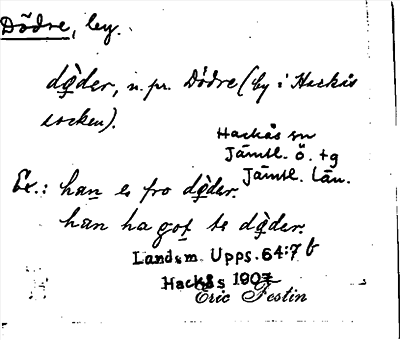 Dödre, by.
dø̨der, n. pr. Dödre (by i Hackås
socken).
Hackås sn
Jämtl. ö. tg
Jämtl. län.
Ex.: han es fro dø̨der.
han ha got te dø̨der.
Landsm. Upps. 64:7 b
Hackås 1907
Eric Festin